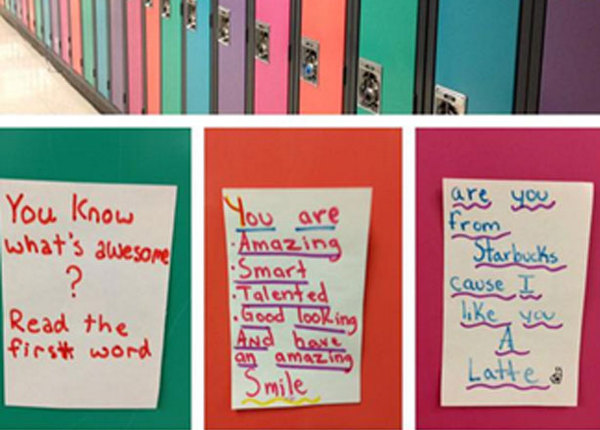 You Know
what's awesome
?
Read the
first word
You are
·Amazing
·Smart
·Talented
·Good looking
And have
an amazing
Smile
are you
from
Starbucks
cause I
like you
A
Latte